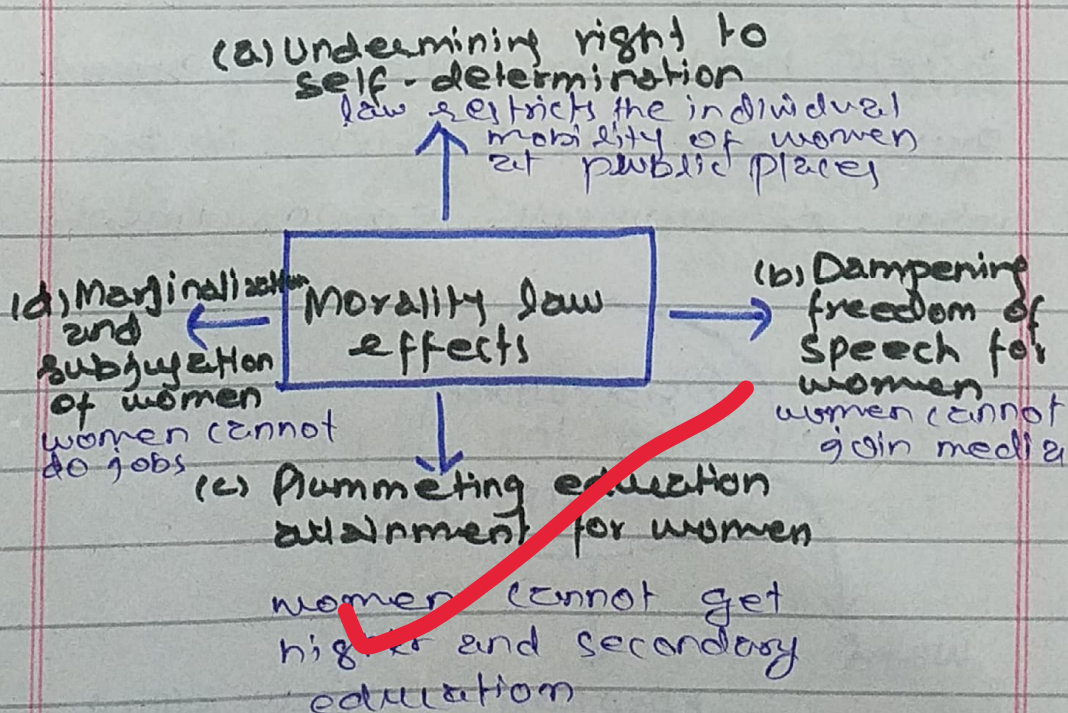 (a) Undermining right to
self-determination
law restricts the individual
mobility of women
at public places
Morality law
effects
(b) Dampening
freedom of
speech for
women
women cannot
join media
(c) Plummeting education
attainment for women
women cannot get
higher and secondary
education
(d) Marginalization
and
subjugation
of women
women cannot
do jobs